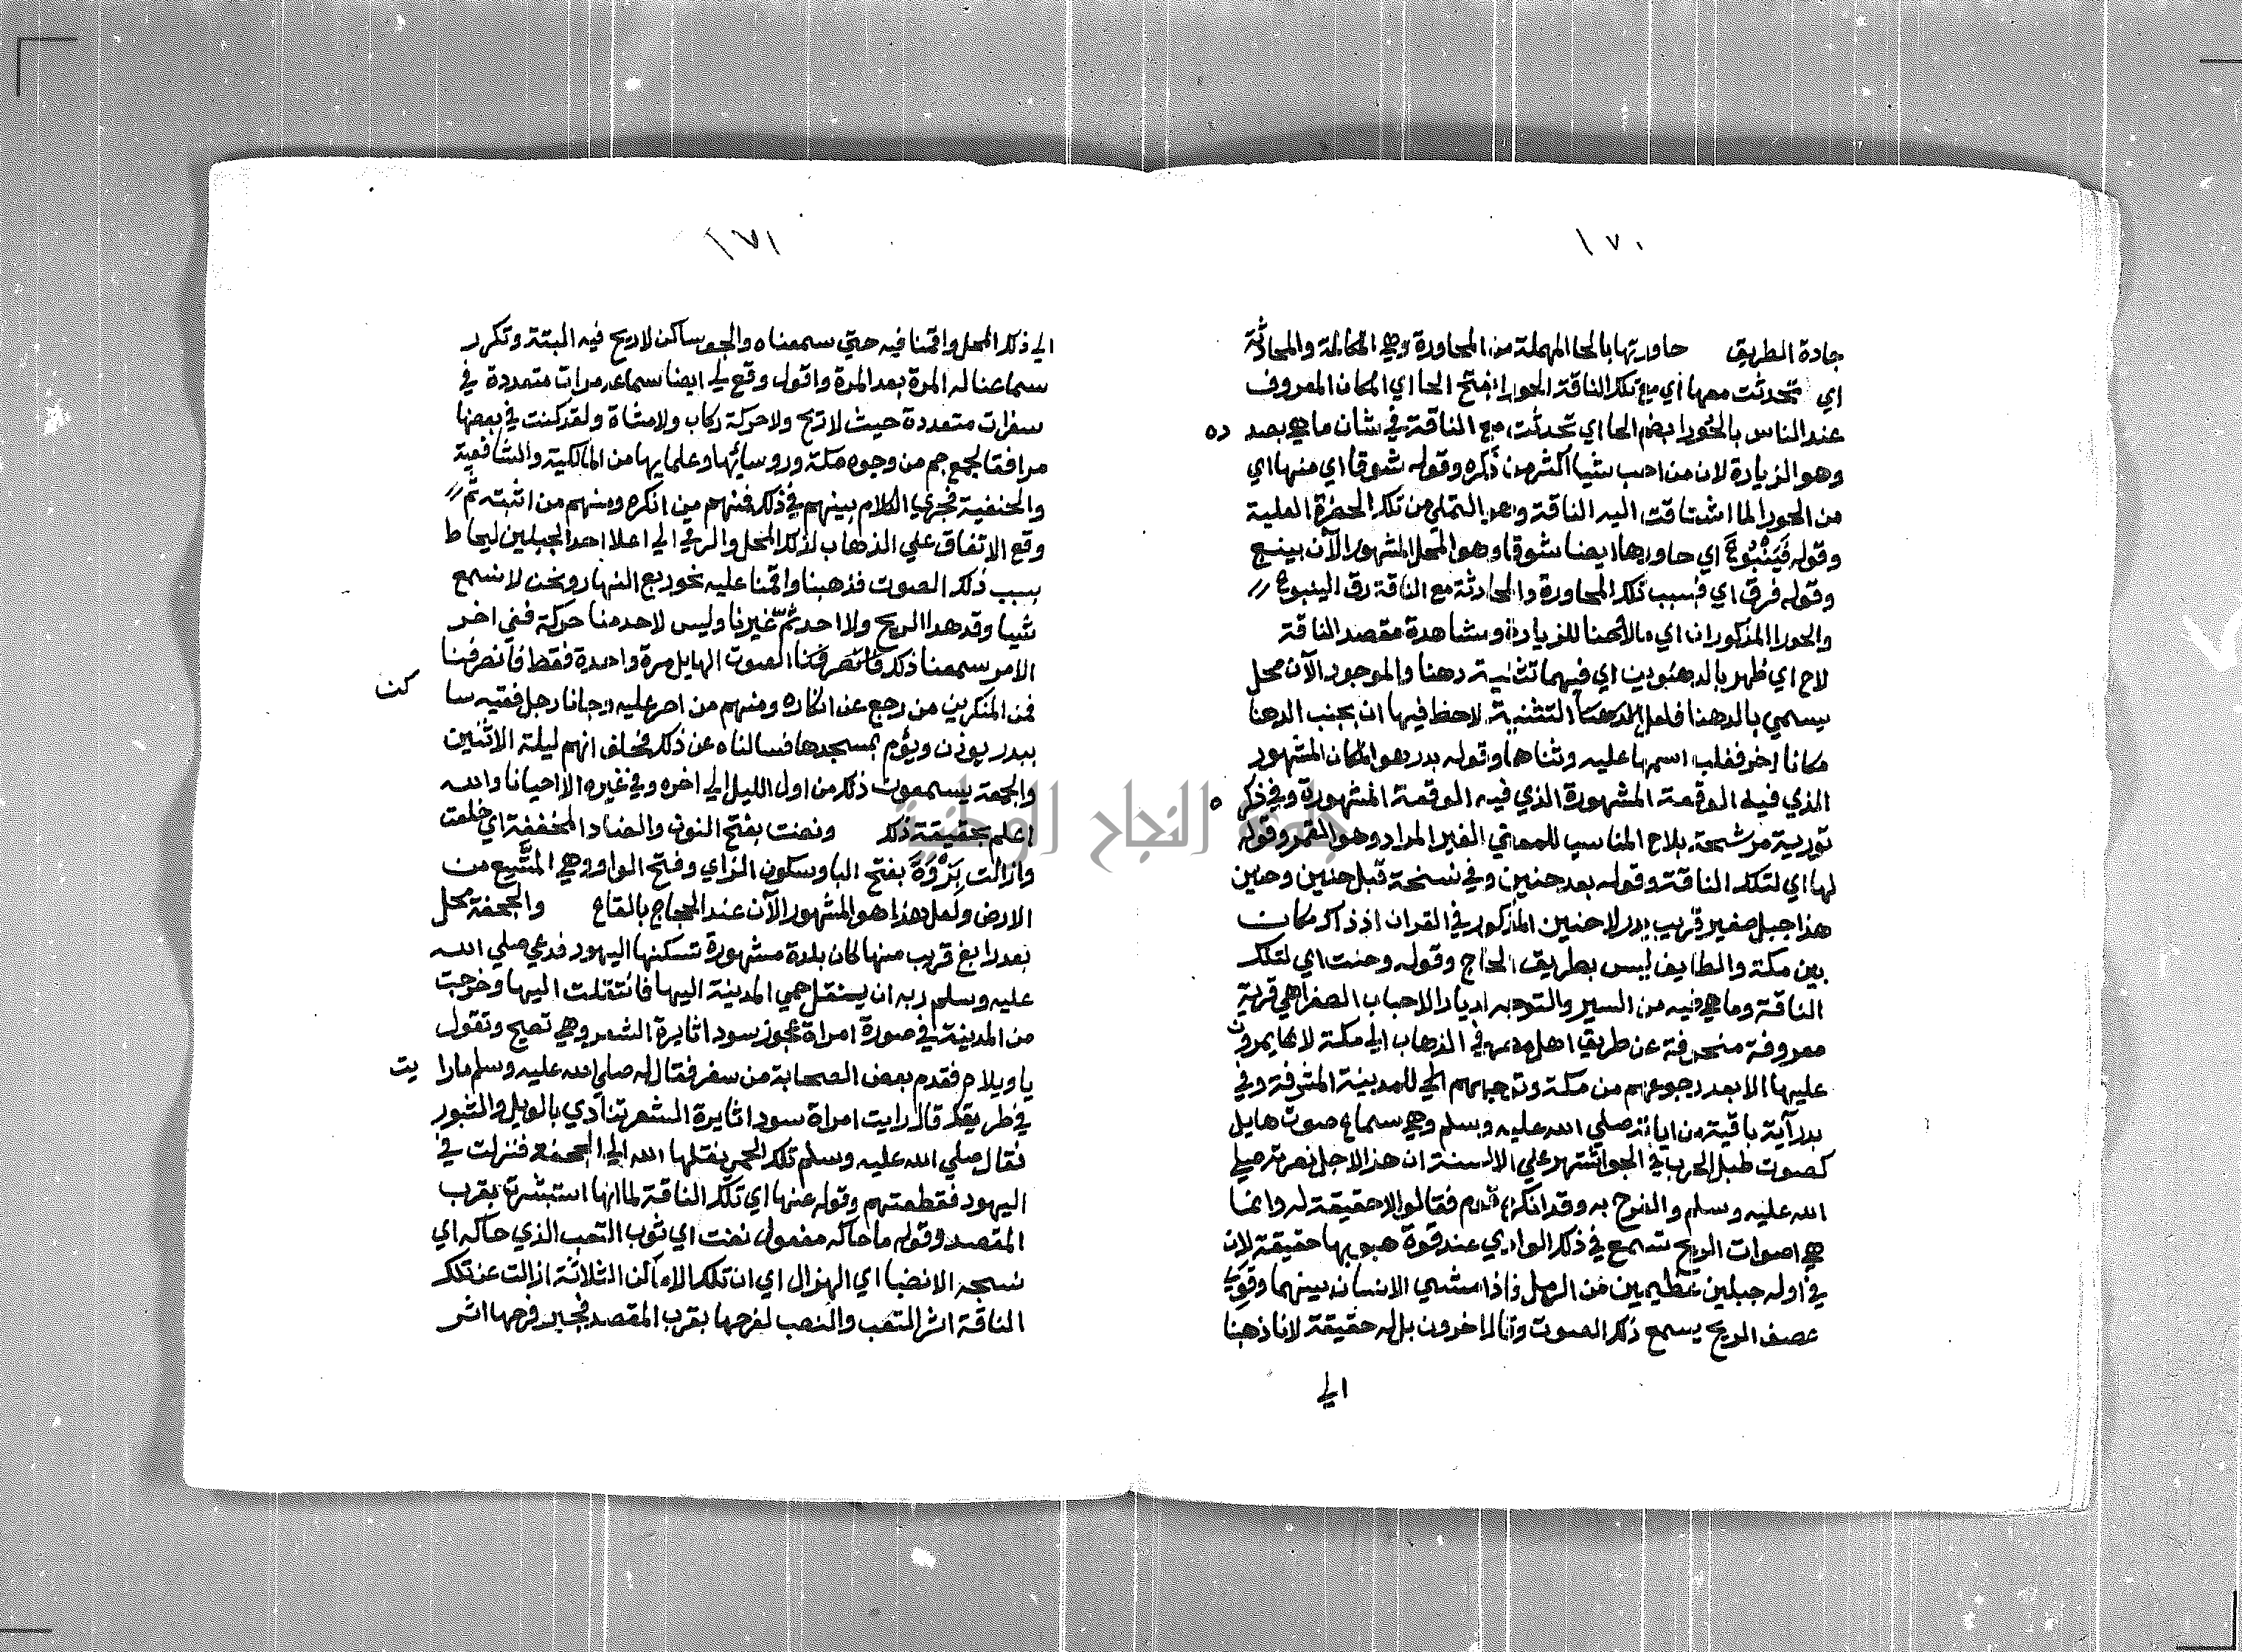 ١٧٠
جادة الطريق حاورتها بالحا المهملة من المحاورة وهي المكالمة والمحادثة
اي تحدثت معها اي مع تلك الناقة الحورا بفتح الحا اي المكان المعروف
عند الناس بالحورا بضم الحا اي تحدثت مع الناقة في شان ما هي بصد ده
وهو الزيارة لان من احب شيا اكثر من ذكره وقوله شوقا اي منها اي
من الحورا لما اشتاقت اليه الناقة وهو التملي من تلك الحضرة العلية
وقوله فَيَنْبُوعٌ اي حاورها ايضا شوقا وهو المحل المشهور الآن بينبع
وقوله فرق اي فبسبب تلك المحاورة والمحادثة مع الناقة رق الينبوع
والحورا المذكوران اي مالا هنا للزيارة ومشاهدة مقصد الناقة
لاح اي ظهر بالدهنوين اي فيهما تثنية دهنا والموجود الآن محل
يسمي بالدهنا فلعل التثنية لاحظ فيها ان بجنب الدهنا
مكانا اخر فغلب اسمها عليه وثناها وقوله بدر هو المكان المشهور
الذي فيه الوقعة المشهورة الذي فيه الوقعة المشهورة وفي ذكره
تورية مرشحة بلاح المناسب للمعني الغير المراد وهو القمر وقوله
لها اي لتلك الناقة وقوله بعد حنين وفي نسخة قبل حنين وحنين
هذا جبل صغير قريب بدر لا حنين المذكور في القران اذ ذاك مكان
بين مكة والطايف ليس بطريق الحاج وقوله وحنت اي لتلك
الناقة وما هي فيه من السير والتوجه لديار الاحباب الصفرا هي قرية
معروفة منحرفة عن طريق اهل مصر في الذهاب الي مكة لا نما يمرون
عليها الا بعد رجوعهم من مكة وتوجههم الي المدينة المشرفة وفي
بدر آية باقية من اياته صلي الله عليه وسلم وهي سماع صوت هايل
كصوت طبل الحرب في الجو اشتهر علي الالسنة ان هذا لاجل نصرته صلي
الله عليه وسلم والفرح به وقد انكره قوم فقالوا لا حقيقة له وانما
هي اصوات الريح تسمع في ذلك الوادي عند قوة هبوبها حقيقة لان
في اوله جبلين عظيمين من الرمل فاذا مشي الانسان بينهما وقوي
عصف الريح يسمع ذلك الصوت وقال اخرون بل له حقيقة لانا ذهبنا
الي
١٧١
الي ذلك المحل واقمنا فيه حتي سمعناه والجو ساكن لا ريح فيه البتة وتكرر
سماعنا له المرة بعد المرة واقول وقع لي ايضا سماعه مرات متعددة في
سفرات متعددة حيث لا ريح ولا حركة ركاب ولا مشاة ولقد كنت في بعضها
مرافقا لجمع جم من وجوه مكة وروسائها وعلمايها من المالكية والشافعية
والحنفية فجري الكلام بينهم في ذلك فمنهم من انكره ومنهم من اثبته ثم
وقع الاتفاق علي الذهاب لذلك المحل والرقي الي اعلا احد الجبلين ليحاط
بسبب ذلك الصوت فذهبنا واقمنا عليه نحو ربع النهار ونحن لا نسمع
شيا وقد هدا الريح ولا احد ثم غيرنا وليس لاحد منا حركة ففي اخر
الامر سمعنا ذلك الصوت الهايل مرة واحدة فقط فانصرفنا
فمن المنكرين من رجع عن انكاره ومنهم من اصر عليه وجانا رجل فقيه سا كن
ببدر يوذن ويؤم بمسجدها فسالناه عن ذلك فحلف انهم ليلة الاثنين
والجمعة يسمعون ذلك من اول الليل الي اخره وفي غيره الا احيانا والله
اعلم بحقيقة ذلك ونضت بفتح النون والضاد المخففة اي خلعت
وازالت بَزْوَةَ بفتح البا وسكون الزاي وفتح الواو وهي المتسع من
الارض ولعل هذا هو المشهور الآن عند الحجاج بالقاع والجحفة محل
بعد رابغ قريب منها كان بلدة مشهورة تسكنها اليهود فدعي صلي الله
عليه وسلم ربه ان ينقل حمي المدينة اليها فانتقلت اليها وخرجت
من المدينة في صورة امراة عجوز سودا ثايرة الشعر وهي تصيح وتقول
يا ويلاه فقدم بعض الصحابة من سفر فقال له صلي الله عليه وسلم ما را يت
في طريقك قال رايت امراة سودا ثايرة الشعر تنادي بالويل والثبور
فقال صلي الله عليه وسلم تلك الحمي نقلها الله الي الجحفة فنزلت في
اليهود فقطعتهم وقوله عنها اي تلك الناقة لما انها استبشرت بقرب
المقصد وقوله ما حاكه مفعول نضت اي ثوب التعب الذي حاكه اي
نسجه الانضا اي الهزال اي ان تلك الاماكن الثلاثة ازالت عن تلك
الناقة اثر التعب والنصب لفرحها بقرب المقصد فجبر فرحها اثر